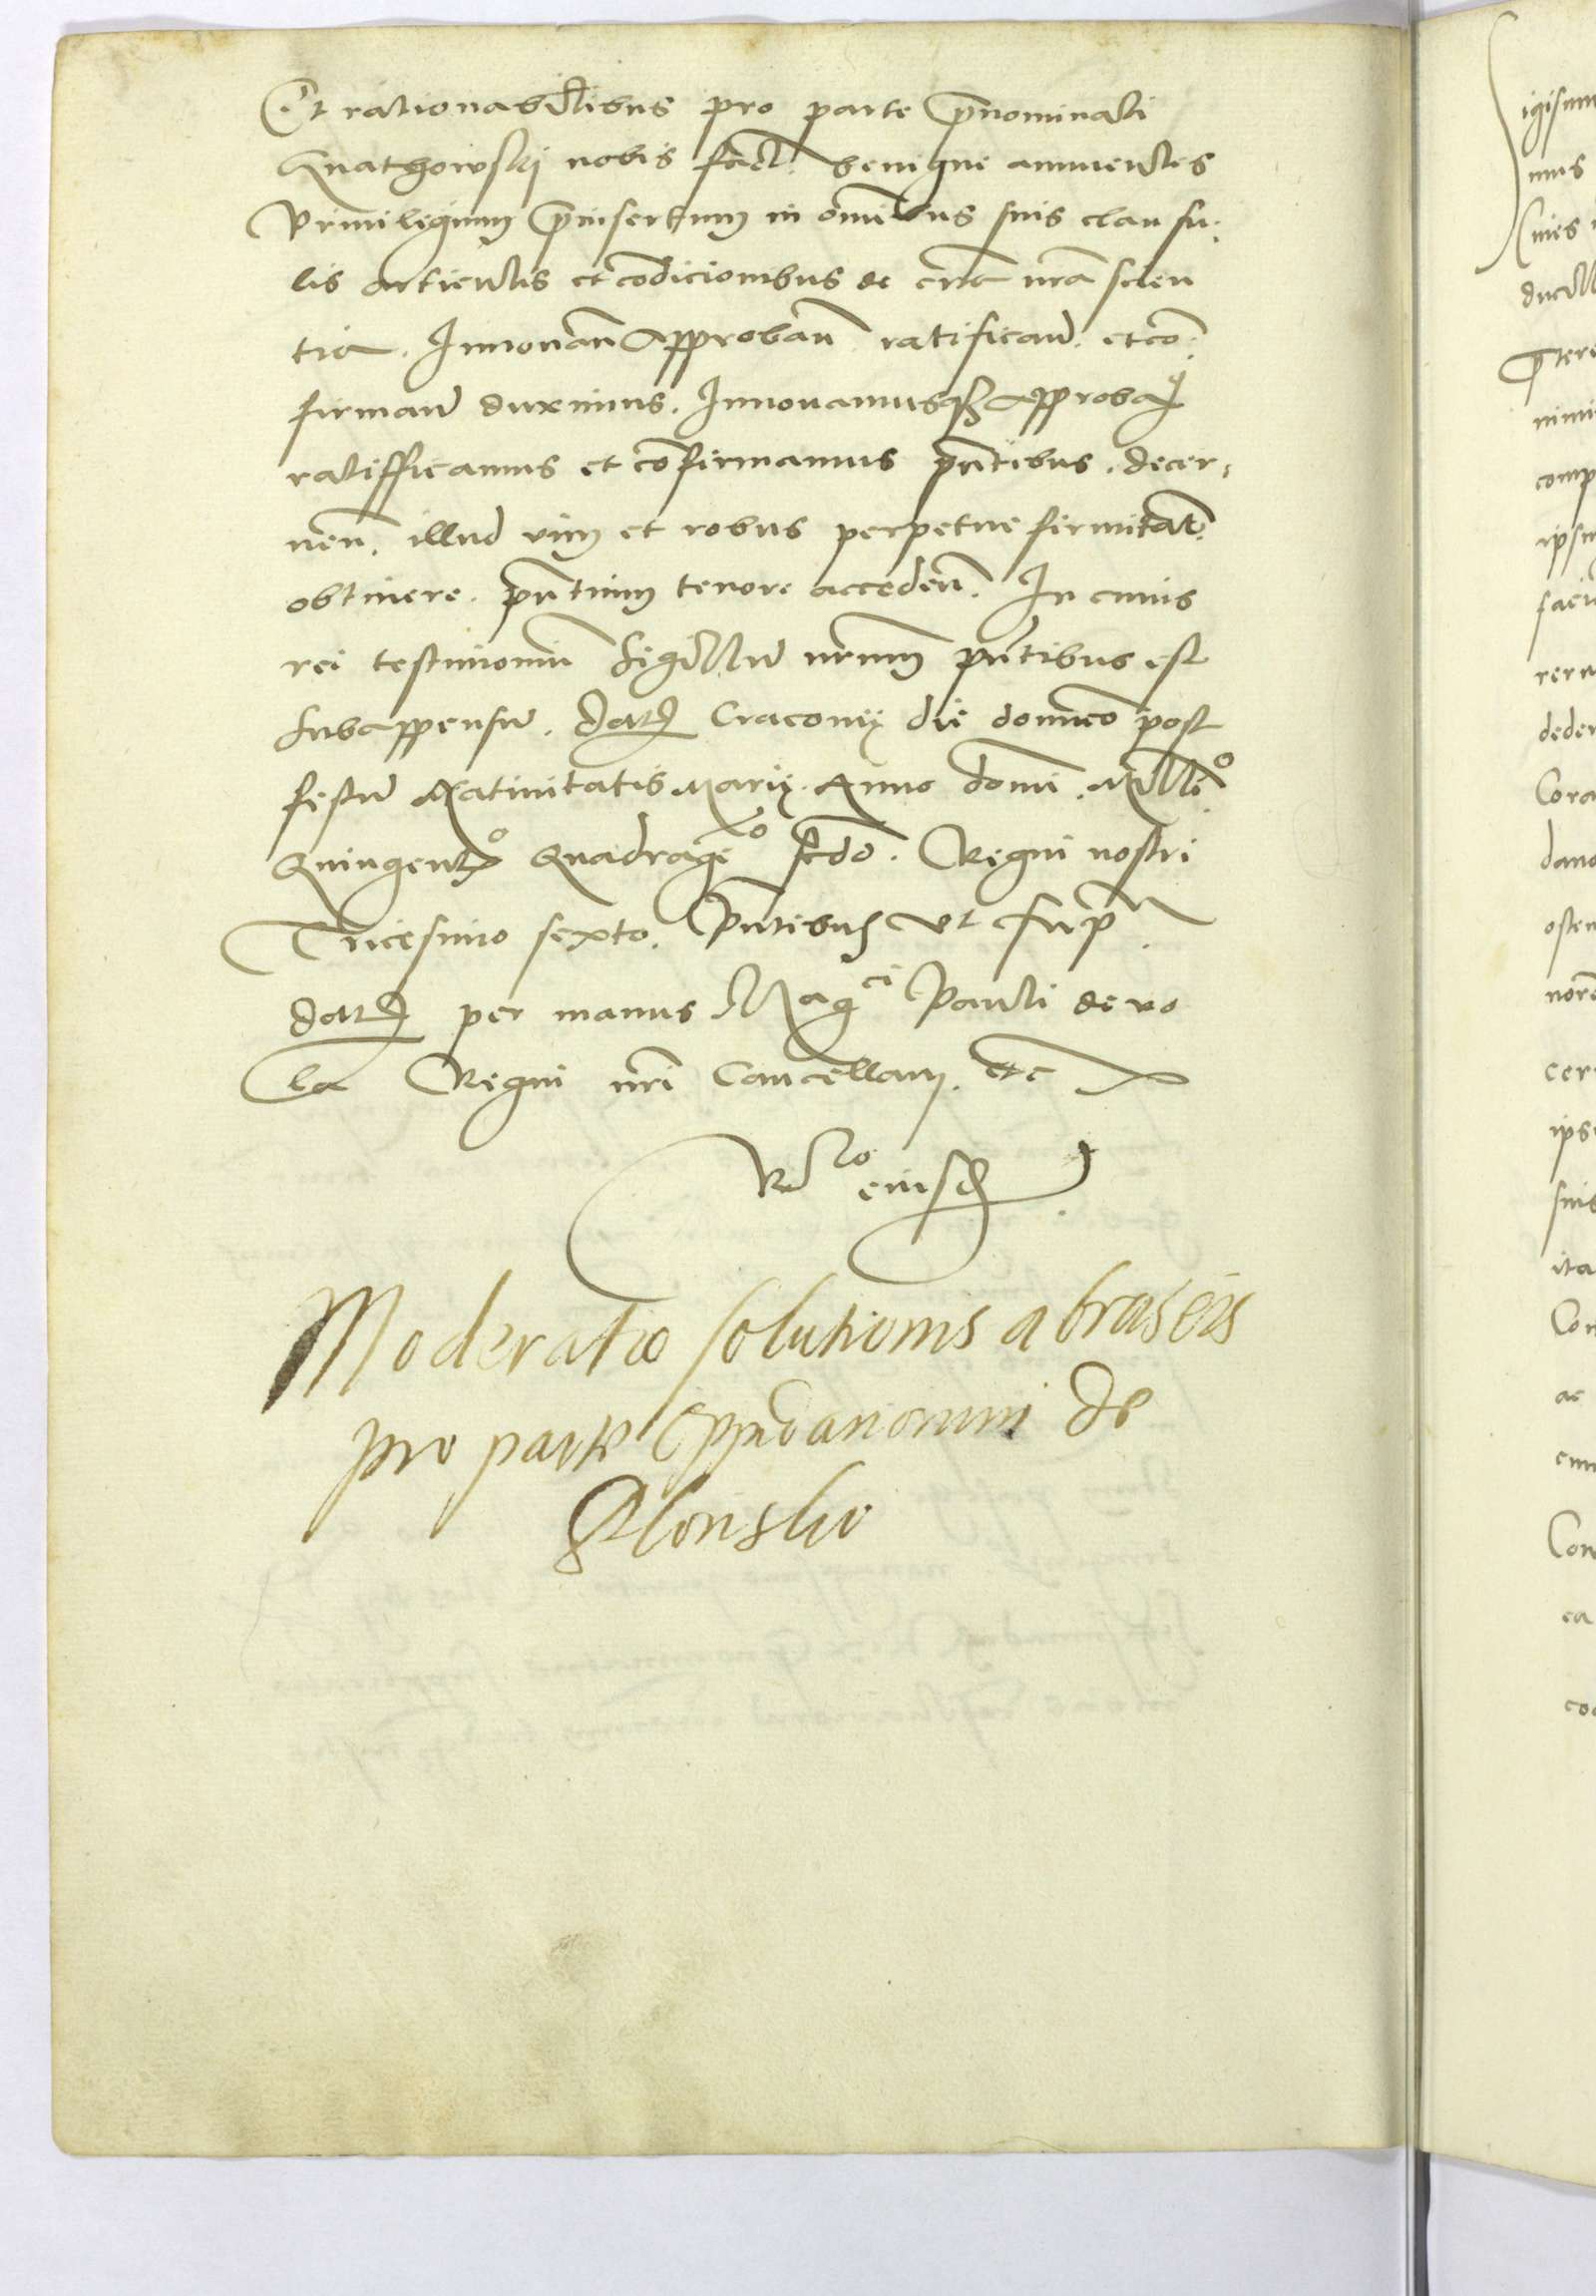 Et rationabilibus pro parte p̄nominati
Gnathowskij nobis fact. benigne annuentes
Priuilegium p̄insertum in om̄ibus suis clausu
lis articulis et cōdicionibus de certa nr̄a scien
tia. Innouan̄ Approban̄ ratifican̄. et cō
firman̄ duximus. Innouamusq3 Approba
ratifficamus et cōfirmamus pn̄tibus. decer
nen̄. illud vim et robur perpetue firmitat̄.
obtinere. pn̄tium tenore acceden̄. In cuius
rei testimoniū Sigillū nr̄um pn̄tibus est
Subappensū. Datū Cracouię die domīco post
festū Natiuitatis Marię. Anno domī. Milli.o
Quingent.o Quadrage.o scdō. Regni nostri
Tricesimo sexto. Pn̄tibus vt supra.
Datū per manus Mag.ci Pauli de vo
la Regni nr̄i Cancellarij. etc
R.lo eiusd.
Moderatio solutionis a braseis
pro parte Oppidanorum de
Plonsko
igism
mus
ducal
nimi
comp
ipsu
deder
Cora
dano
osten
cer
ips
suis
ita
Con
ac
Con
ea